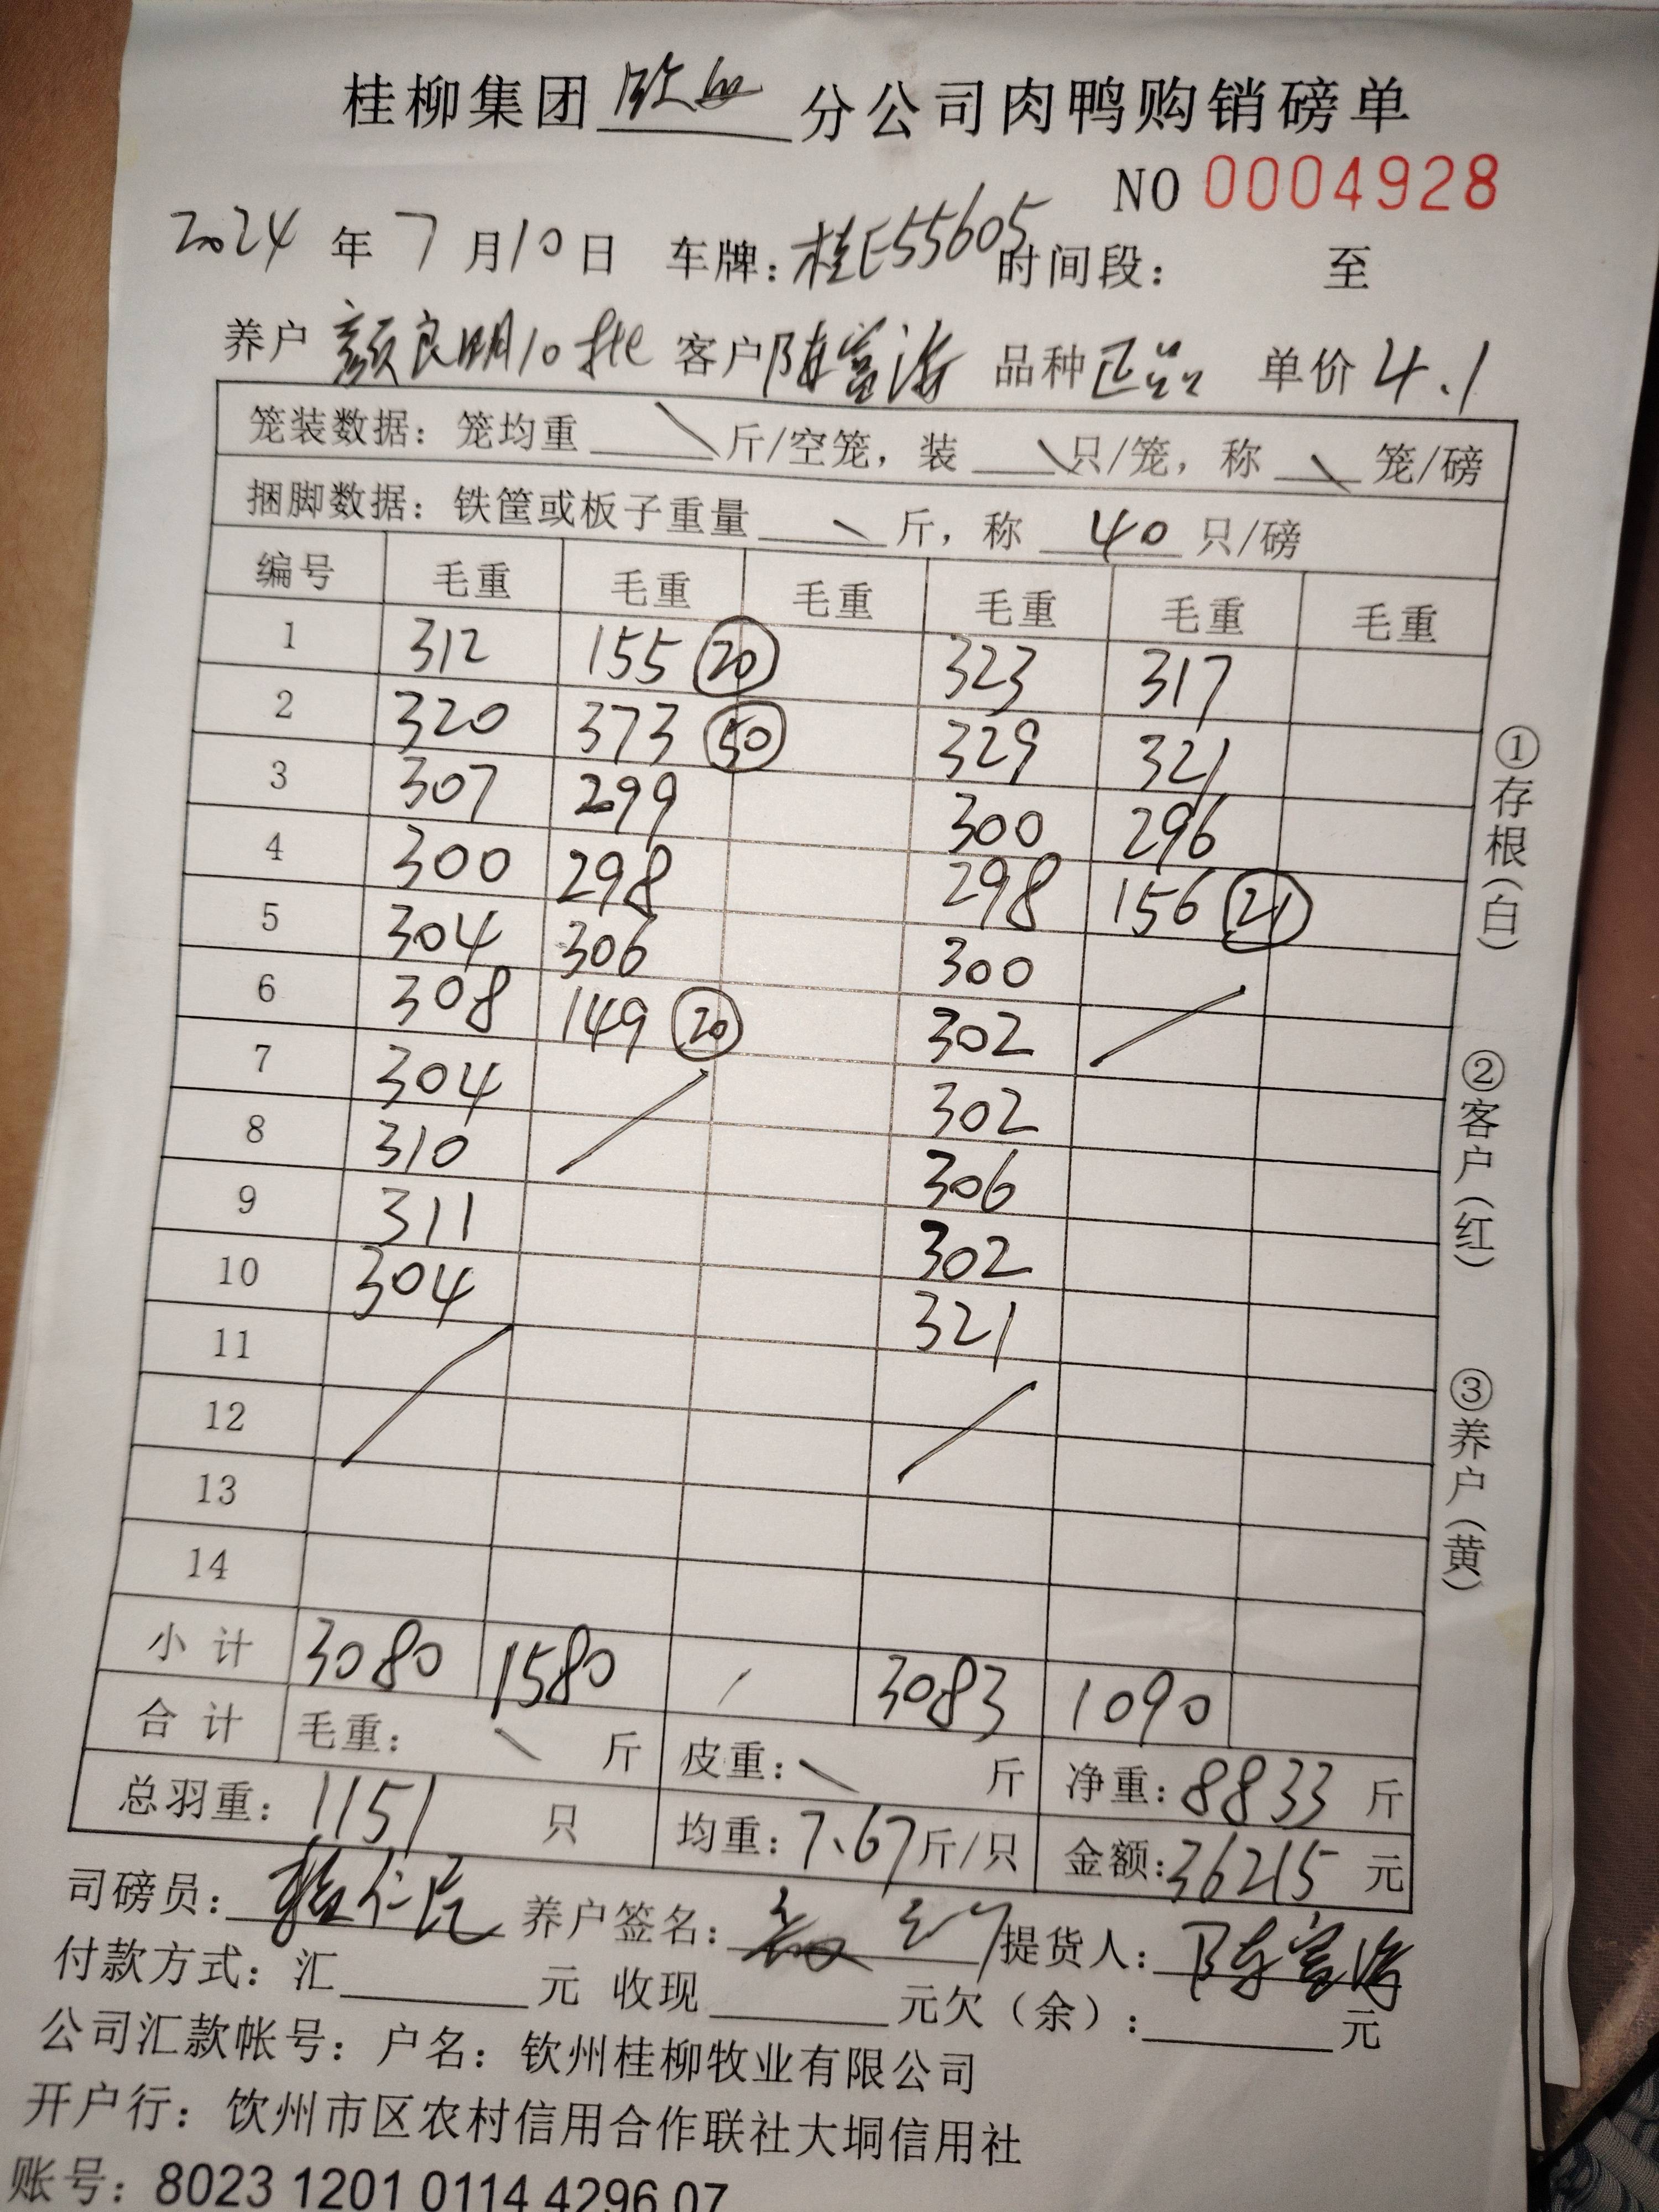 桂柳集团 钦 分公司肉鸭购销磅单
NO 0004928
2024 年 7 月 10 日 车牌：桂E55605 时间段： 至
养户 颜良明10批 客户 陈富海 品种 正品 单价 4.1
笼装数据：笼均重 \ 斤/空笼，装 \ 只/笼，称 \ 笼/磅
捆脚数据：铁筐或板子重量 \ 斤，称 40 只/磅
编号 毛重 毛重 毛重 毛重 毛重 毛重
1 312 155 ⑳ 323 317
2 320 373 ㊿ 329 321
3 307 299 300 296
4 300 298 298 156 ㉑
5 304 306 300
6 308 149 ⑳ 302 /
7 304 302
8 310 / 306
9 311 302
10 304 321
11
12 / /
13
14
小计 3080 1580 / 3083 1090
合计 毛重： \ 斤 皮重： \ 斤 净重：8833 斤
总羽重：1151 只 均重：7.67 斤/只 金额：36215 元
司磅员： 养户签名： 提货人：陈富海
付款方式：汇 元 收现 元欠（余）： 元
公司汇款帐号：户名：钦州桂柳牧业有限公司
开户行：钦州市区农村信用合作联社大垌信用社
账号：8023 1201 0114 4296 07
①存根（白）
②客户（红）
③养户（黄）